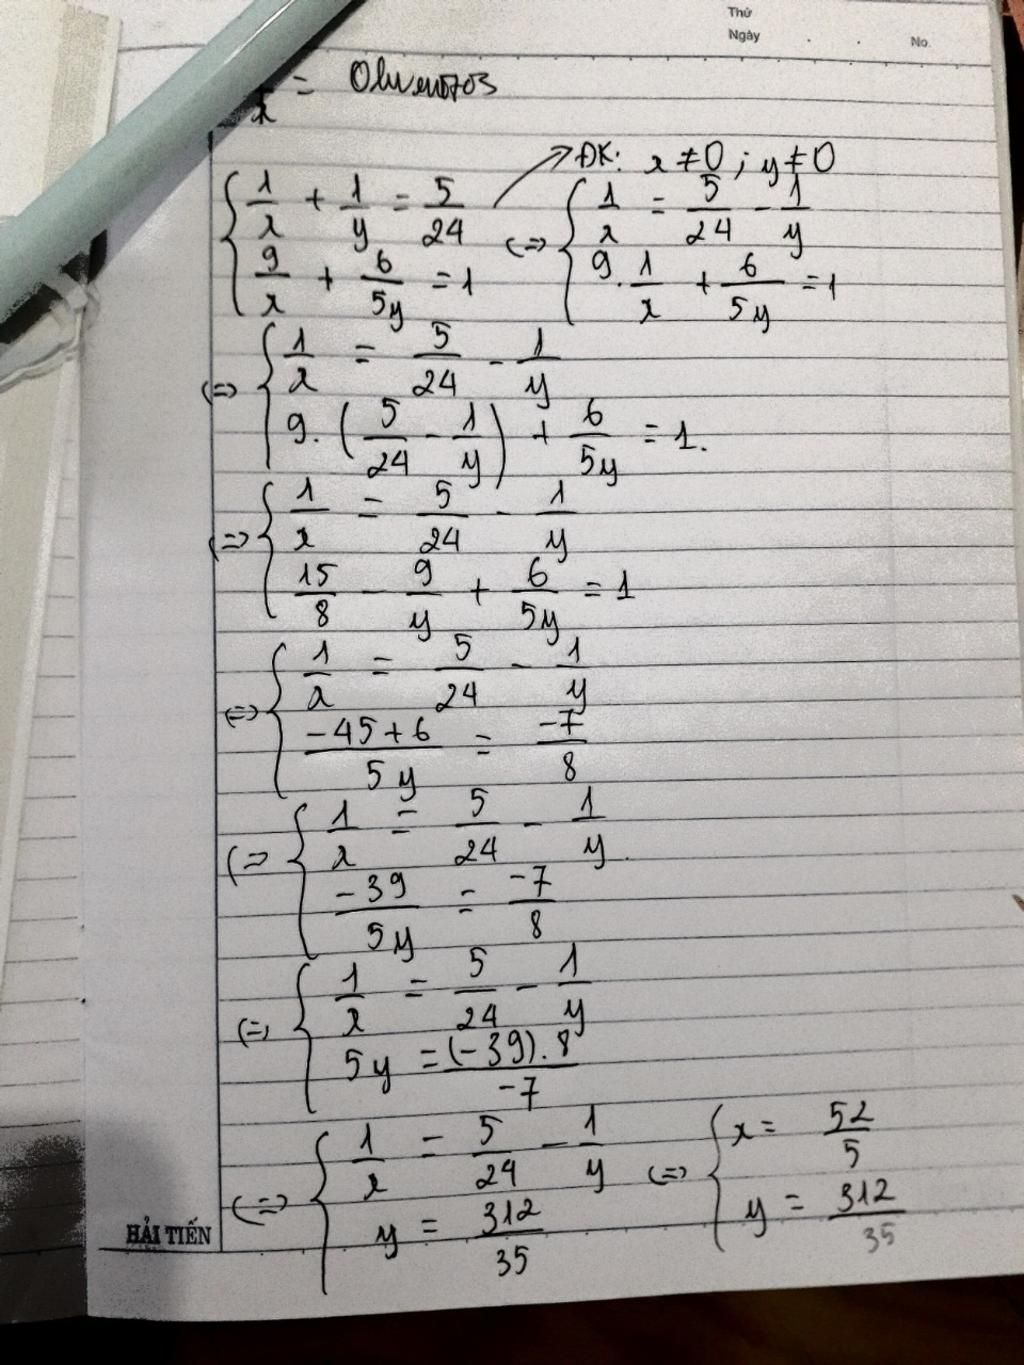 Thứ
Ngày . . No.
x = Olwen0703
{ 1/x + 1/y = 5/24 → ĐK: x ≠ 0 ; y ≠ 0
{ 9/x + 6/5y = 1
(=) { 1/x = 5/24 - 1/y
{ 9 . 1/x + 6/5y = 1
(=) { 1/x = 5/24 - 1/y
{ 9. (5/24 - 1/y) + 6/5y = 1.
(=) { 1/x = 5/24 - 1/y
{ 15/8 - 9/y + 6/5y = 1
(=) { 1/x = 5/24 - 1/y
{ -45+6/5y = -7/8
(=) { 1/x = 5/24 - 1/y.
{ -39/5y = -7/8
(=) { 1/x = 5/24 - 1/y
{ 5y = (-39).8/-7
(=) { 1/x = 5/24 - 1/y
{ y = 312/35
(=) { x = 52/5
{ y = 312/35
HẢI TIẾN